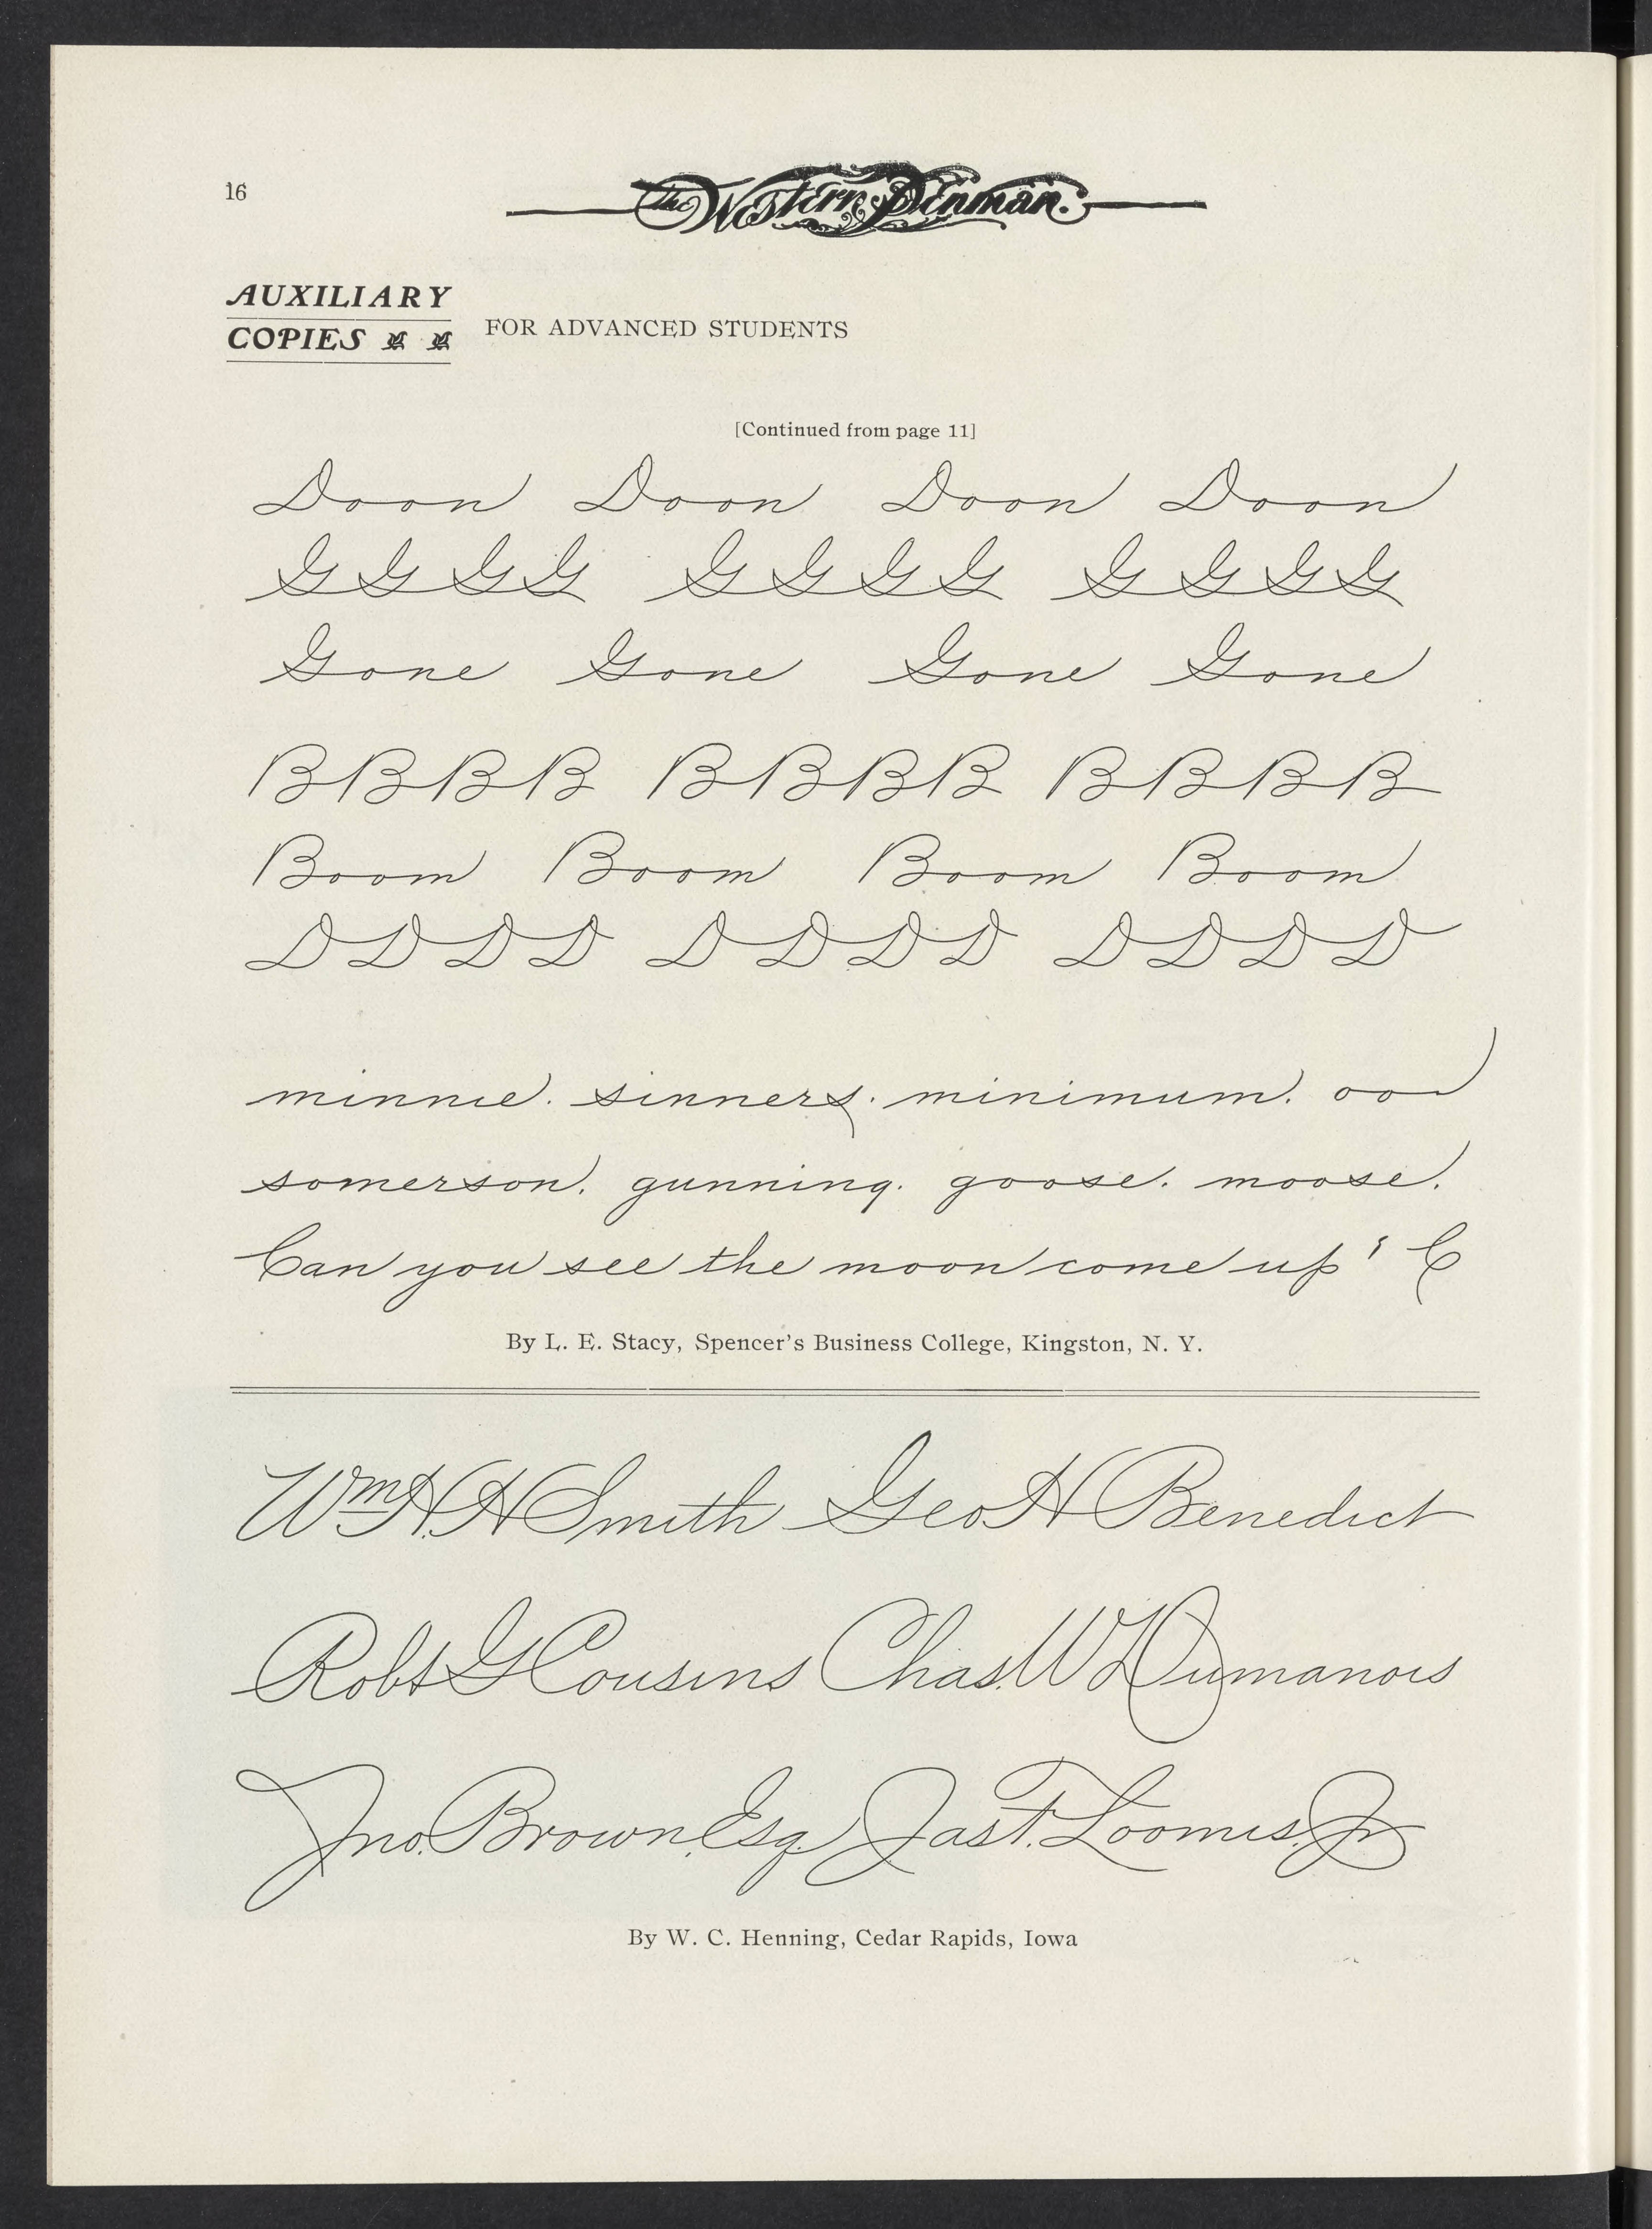 16
The Western Penman.
AUXILIARY
COPIES
FOR ADVANCED STUDENTS
[Continued from page 11]
Doon Doon Doon Doon
G G G G G G G G G G G G
Gone Gone Gone Gone
B B B B B B B B B B B B
Boom Boom Boom Boom
D D D D D D D D D D D D
minnie. sinners. minimum. ooo
somerson. gunning. goose. moose.
Can you see the moon come up ' C
By L. E. Stacy, Spencer's Business College, Kingston, N. Y.
Wm. H. H Smith Geo H Benedict
Robt G Cousins Chas. W Dumanois
Jno. Brown, Esq. Jas. T. Loomis. Jr
By W. C. Henning, Cedar Rapids, Iowa